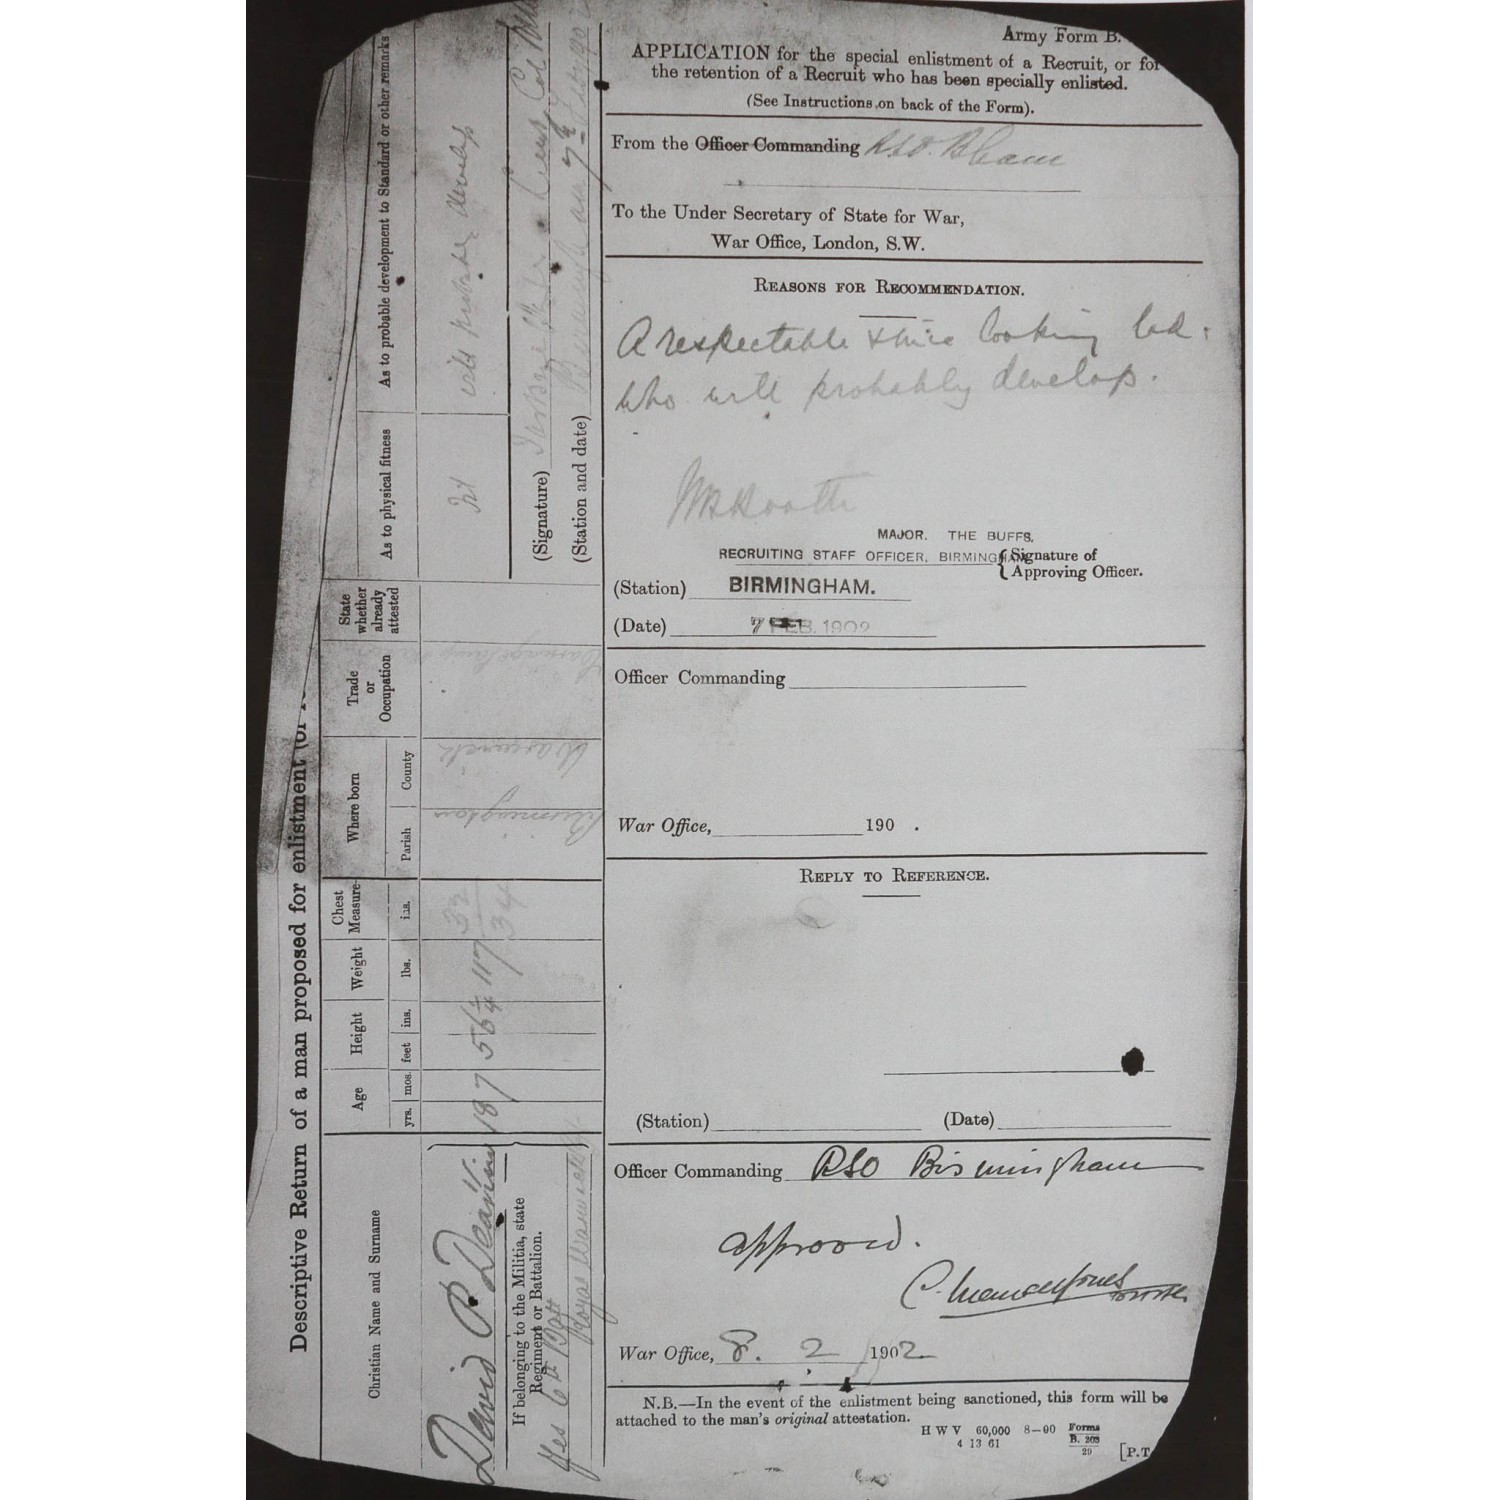 Army Form B.
APPLICATION for the special enlistment of a Recruit, or for
the retention of a Recruit who has been specially enlisted.
(See Instructions on back of the Form).
From the Officer Commanding RSO. B'ham
To the Under Secretary of State for War,
War Office, London, S.W.
REASONS FOR RECOMMENDATION.
A respectable & nice looking lad.
who will probably develop.
MAJOR. THE BUFFS,
RECRUITING STAFF OFFICER, BIRMINGHAM
Signature of
Approving Officer.
(Station) BIRMINGHAM.
(Date) 7 FEB. 1902
Officer Commanding
War Office, 190 .
REPLY TO REFERENCE.
(Station) (Date)
Officer Commanding RSO Birmingham
approved.
War Office, 8. 2 1902
N.B.—In the event of the enlistment being sanctioned, this form will be
attached to the man's original attestation.
H W V 60,000 8—00 Forms
4 13 61 B. 203
29
[P.T
Descriptive Return of a man proposed for enlistment (or
Christian Name and Surname
Age
yrs. mos.
Height
feet ins.
Weight
lbs.
Chest
Measure-
ins.
Where born
Parish County
Trade
or
Occupation
State
whether
already
attested
As to physical fitness
As to probable development to Standard or other remarks
David P Deakin 18 7 5 6 1/4 117 32
34
Birmingham
Warwick
fit
will probably develop
If belonging to the Militia, state
Regiment or Battalion.
Yes 6th Batt
Royal Warwick
(Signature)
(Station and date) Birmingham 7th